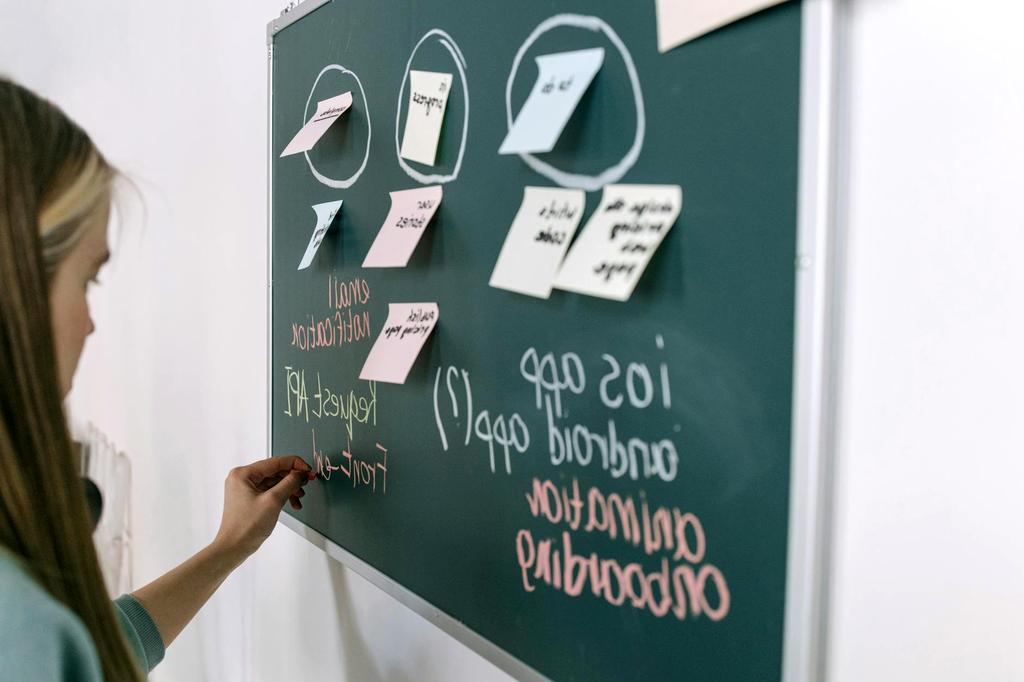 to do
in
progress
write
code
pricing
page
ios app
android app(?)
animation
onboarding
user
stories
publish
pricing page
email
notification
Request API
Front-end